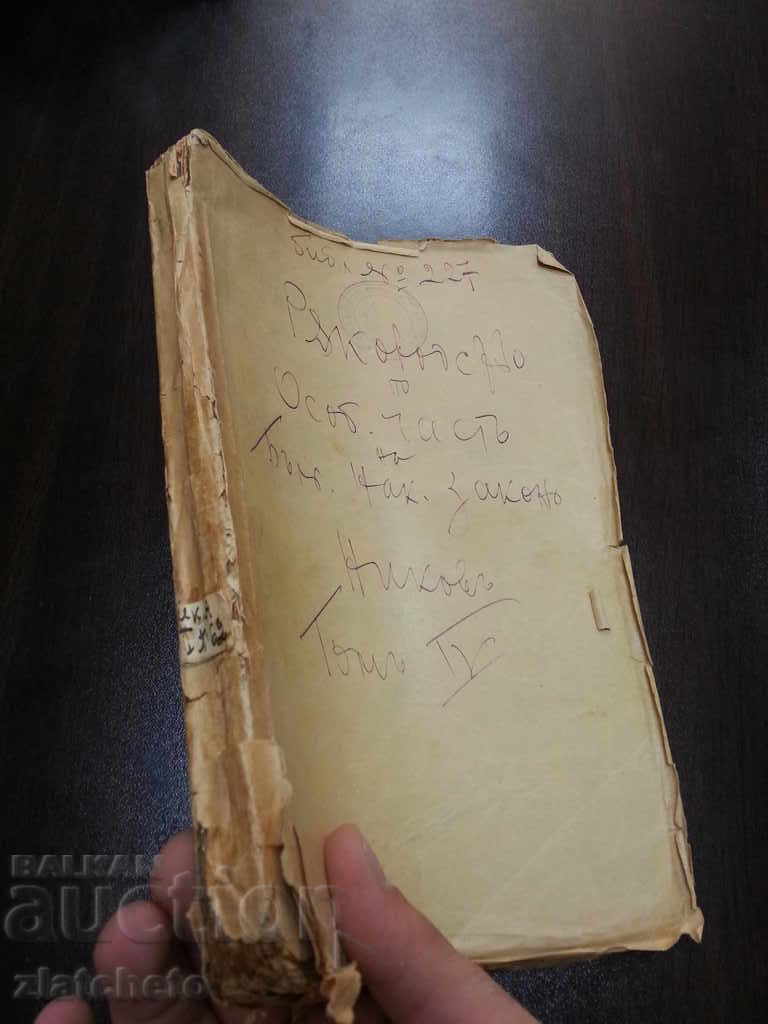 Биб. № 221
Рѫководство
по
Особ. часть
на
Бълг. Нак. Законъ
Никовъ
Томъ IV
BALKAN
auction
zlatcheto